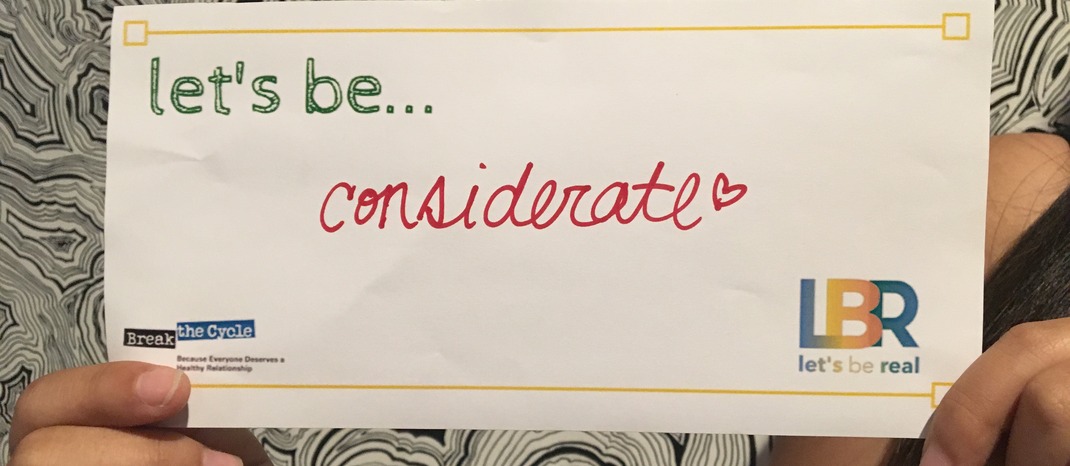 let's be...
considerate
Break the Cycle
Because Everyone Deserves a
Healthy Relationship
LBR
let's be real